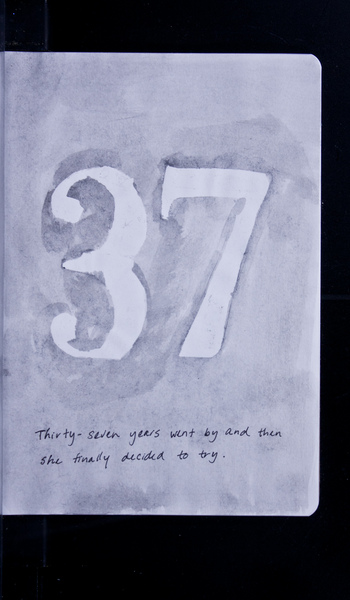 37
Thirty-seven years went by and then
she finally decided to try.